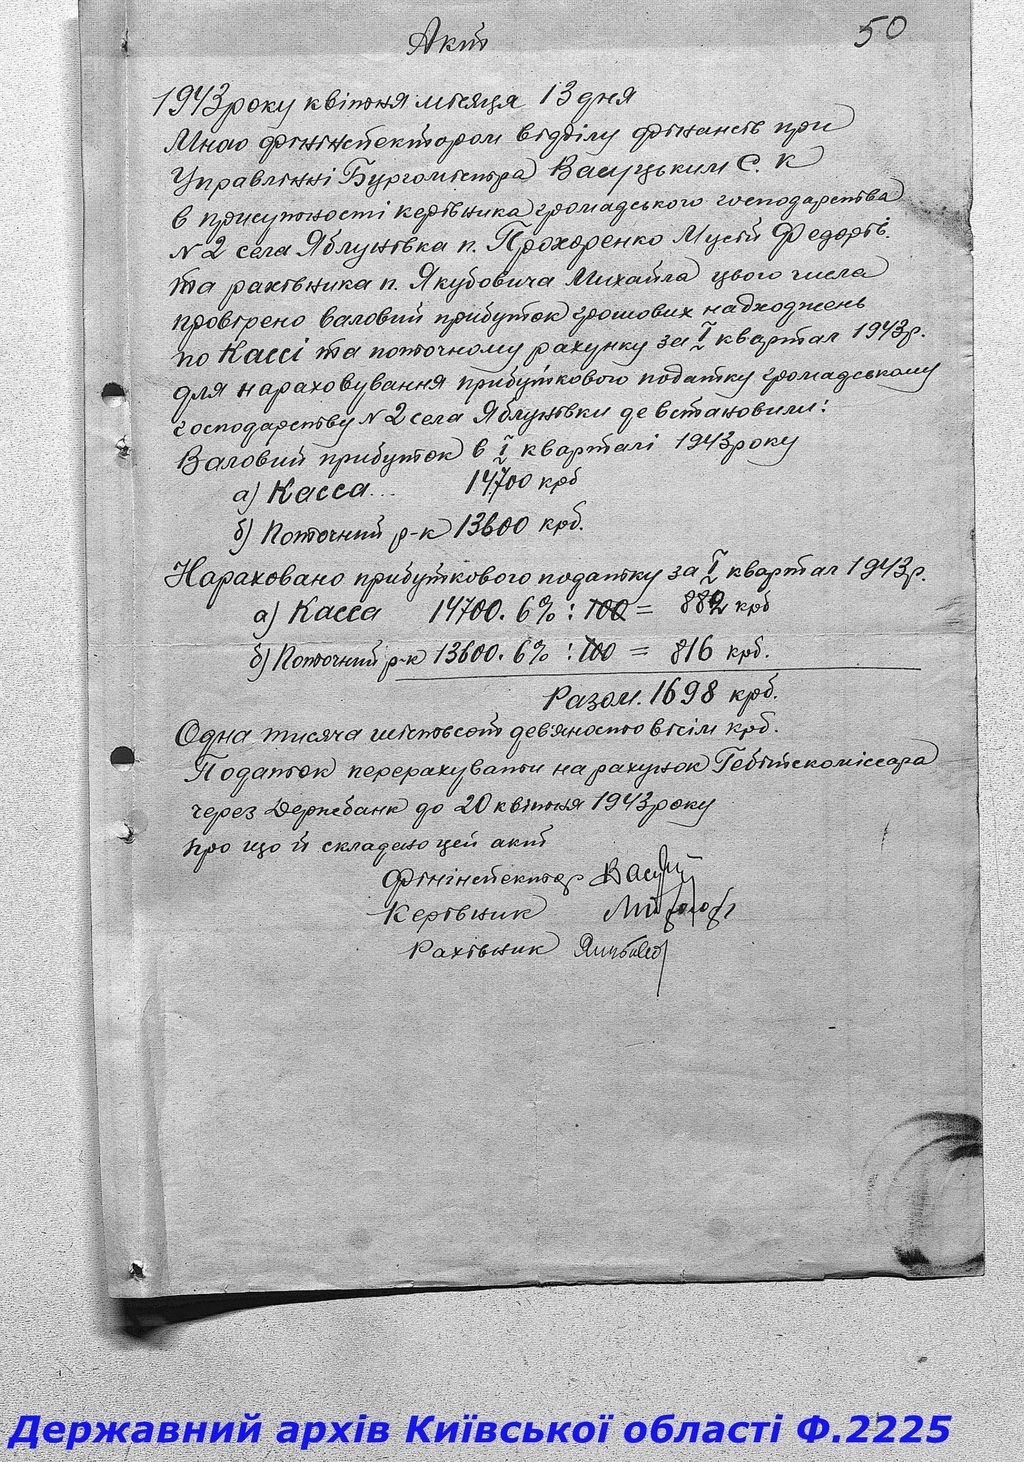 Акт
50
1943 року квітня місяця 13 дня
Мною фінінспектором відділу фінансів при
Управлінні Бургомістра Васуцьким С. К
в присутності керівника громадського господарства
№2 села Яблунівка п. Прохоренко Мусій Федорів.
та рахівника п. Якубовича Михайла цього числа
провірено валовий прибуток грошових надходжень
по Кассі та поточному рахунку за I квартал 1943р.
для нараховування прибуткового податку громадському
господарству №2 села Яблунівки де встановили:
Валовий прибуток в I кварталі 1943 року
а) Касса... 14700 крб
б) Поточний р-к 13600 крб.
Нараховано прибуткового податку за I квартал 1943р.
а) Касса 14700. 6% : 100 = 882 крб
б) Поточний р-к 13600. 6% : 100 = 816 крб.
Разом. 1698 крб.
Одна тисяча шістьсот дев'яносто вісім крб.
Податок перерахувати на рахунок Гебітскоміссара
через Держбанк до 20 квітня 1943 року
про що й складено цей акт
Фінінспектор
Керівник
Рахівник
Державний архів Київської області Ф.2225